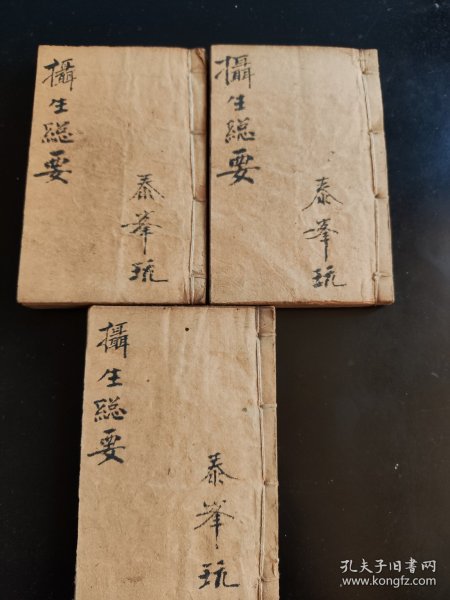 攝生緫要
泰峯玩
攝生緫要
泰峯玩
攝生緫要
泰峯玩
孔夫子旧书网
www.kongfz.com